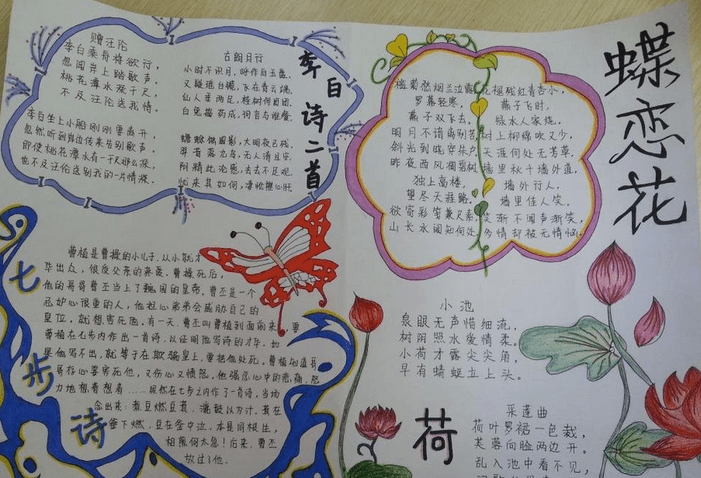 李白诗二首
赠汪伦
李白乘舟将欲行,
忽闻岸上踏歌声。
桃花潭水深千尺,
不及汪伦送我情。
李白坐上小船刚刚要离开,
忽然听到岸边传来告别歌声。
即使桃花潭水有一千尺那么深,
也不及汪伦送别我的一片情深。
古朗月行
小时不识月,呼作白玉盘。
又疑瑶台镜,飞在青云端。
仙人垂两足,桂树何团团。
白兔捣药成,问言与谁餐。
蟾蜍蚀圆影,大明夜已残。
羿昔落九乌,天人清且安。
阴精此沦惑,去去不足观。
忧来其如何,
蝶恋花
槛菊愁烟兰泣露
罗幕轻寒,
燕子双飞去。
明月不谙离别苦
斜光到晓穿朱户
昨夜西风凋碧树
独上高楼,
望尽天涯路。
欲寄彩笺兼尺素
山长水阔知何处
花褪残红青杏小,
燕子飞时,
绿水人家绕。
枝上柳绵吹又少,
天涯何处无芳草。
墙里秋千墙外道,
墙外行人,
墙里佳人笑。
笑渐不闻声渐笑,
多情却被无情恼。
七步诗
曹植是曹操的小儿子,从小就才
华出众,很受父亲的亲爱。曹操死后,
他的哥哥曹丕当上了魏国的皇帝。曹丕是一个
忌妒心很重的人,他担心弟弟会威胁自己的
皇位,就想害死他。有一天,曹丕叫曹植到面前来,要
曹植在七步内作出一首诗,以证明他写诗的才华。如
果他写不出,就等于在欺骗皇上,要把他处死。曹植知道哥
哥存心要害死他,又伤心又愤怒。他强忍心中的悲痛,努
力地想着想着……果然在七步之内作了一首诗,当场
念出来:煮豆燃豆萁,漉豉以为汁,萁在
釜下燃,豆在釜中泣,本是同根生,
相煎何太急!后来,曹丕
放过了他。
小池
泉眼无声惜细流,
树阴照水爱情柔。
小荷才露尖尖角,
早有蜻蜓立上头。
荷
采莲曲
荷叶罗裙一色裁,
芙蓉向脸两边开。
乱入池中看不见,